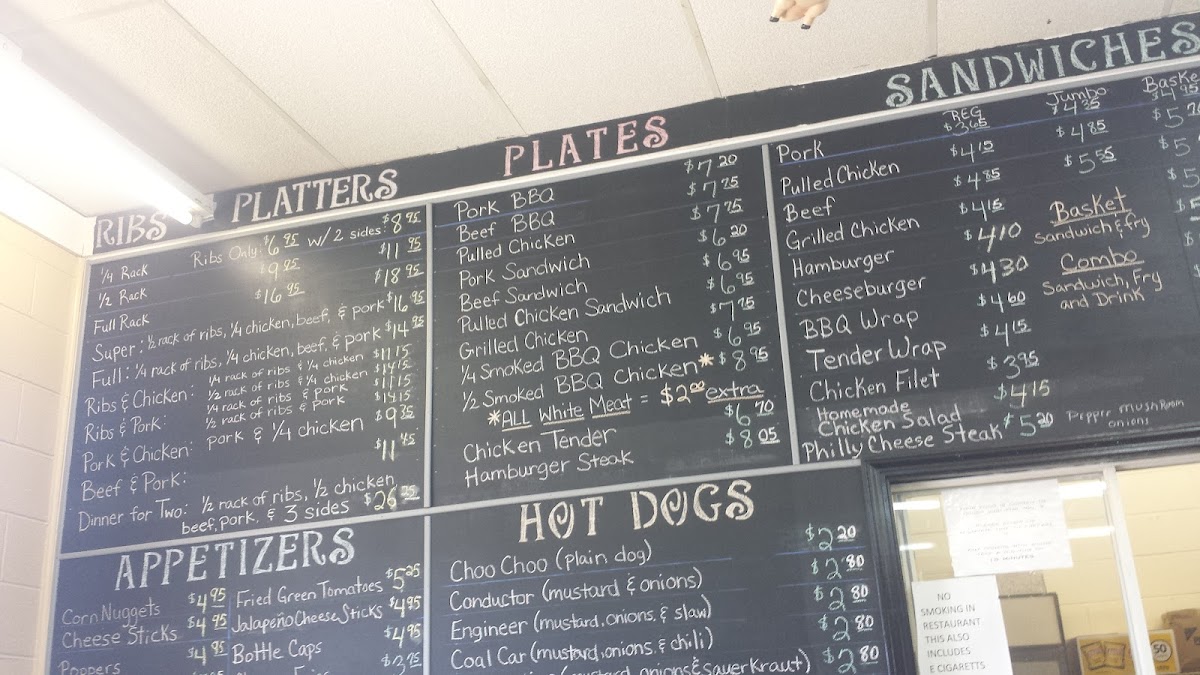 RIBS PLATTERS
Ribs Only: w/ 2 sides:
1/4 Rack $6.95 $8.95
1/2 Rack $9.95 $11.95
Full Rack $16.95 $18.95
Super: 1/2 rack of ribs, 1/4 chicken, beef, & pork $16.95
Full: 1/4 rack of ribs, 1/4 chicken, beef, & pork $14.95
Ribs & Chicken: 1/4 rack of ribs & 1/4 chicken $11.15
1/2 rack of ribs & 1/4 chicken $14.15
Ribs & Pork: 1/4 rack of ribs & pork $11.15
1/2 rack of ribs & pork $14.15
Pork & Chicken: pork & 1/4 chicken $9.35
Beef & Pork: $11.45
Dinner for Two: 1/2 rack of ribs, 1/2 chicken,
beef, pork, & 3 sides $26.75
PLATES
Pork BBQ $7.20
Beef BBQ $7.75
Pulled Chicken $7.75
Pork Sandwich $6.20
Beef Sandwich $6.95
Pulled Chicken Sandwich $6.95
Grilled Chicken $7.75
1/4 Smoked BBQ Chicken $6.95
1/2 Smoked BBQ Chicken* $8.95
*ALL White Meat = $2.00 extra
Chicken Tender $6.70
Hamburger Steak $8.05
SANDWICHES
REG Jumbo Baske
Pork $3.65 $4.35 $4.95
Pulled Chicken $4.15 $4.85 $5.20
Beef $4.85 $5.55 $5
Grilled Chicken $4.15 $5
Hamburger $4.10
Cheeseburger $4.30
BBQ Wrap $4.60
Tender Wrap $4.15
Chicken Filet $3.95
Homemade
Chicken Salad $4.15
Philly Cheese Steak $5.20 Pepper mushroom
onions
Basket
Sandwich & fry
Combo
Sandwich, Fry
and Drink
APPETIZERS
Corn Nuggets $4.95
Cheese Sticks $4.95
Poppers $4.95
Fried Green Tomatoes $5.25
Jalapeño Cheese Sticks $4.95
Bottle Caps $4.95
HOT DOGS
Choo Choo (plain dog) $2.20
Conductor (mustard & onions) $2.80
Engineer (mustard, onions, & slaw) $2.80
Coal Car (mustard, onions, & chili) $2.80
onions & sauerkraut) $2.80
NO
SMOKING IN
RESTAURANT
THIS ALSO
INCLUDES
E CIGARETTS
50